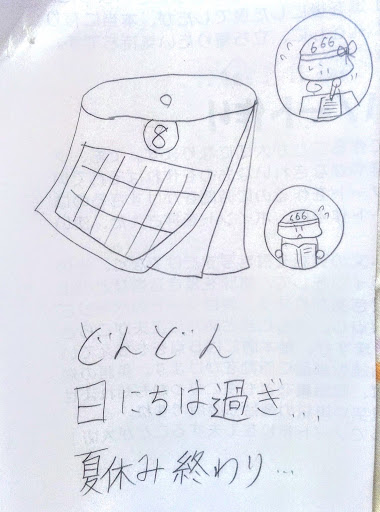 666
8
666
どんどん
日にちは過ぎ...
夏休み終わり...